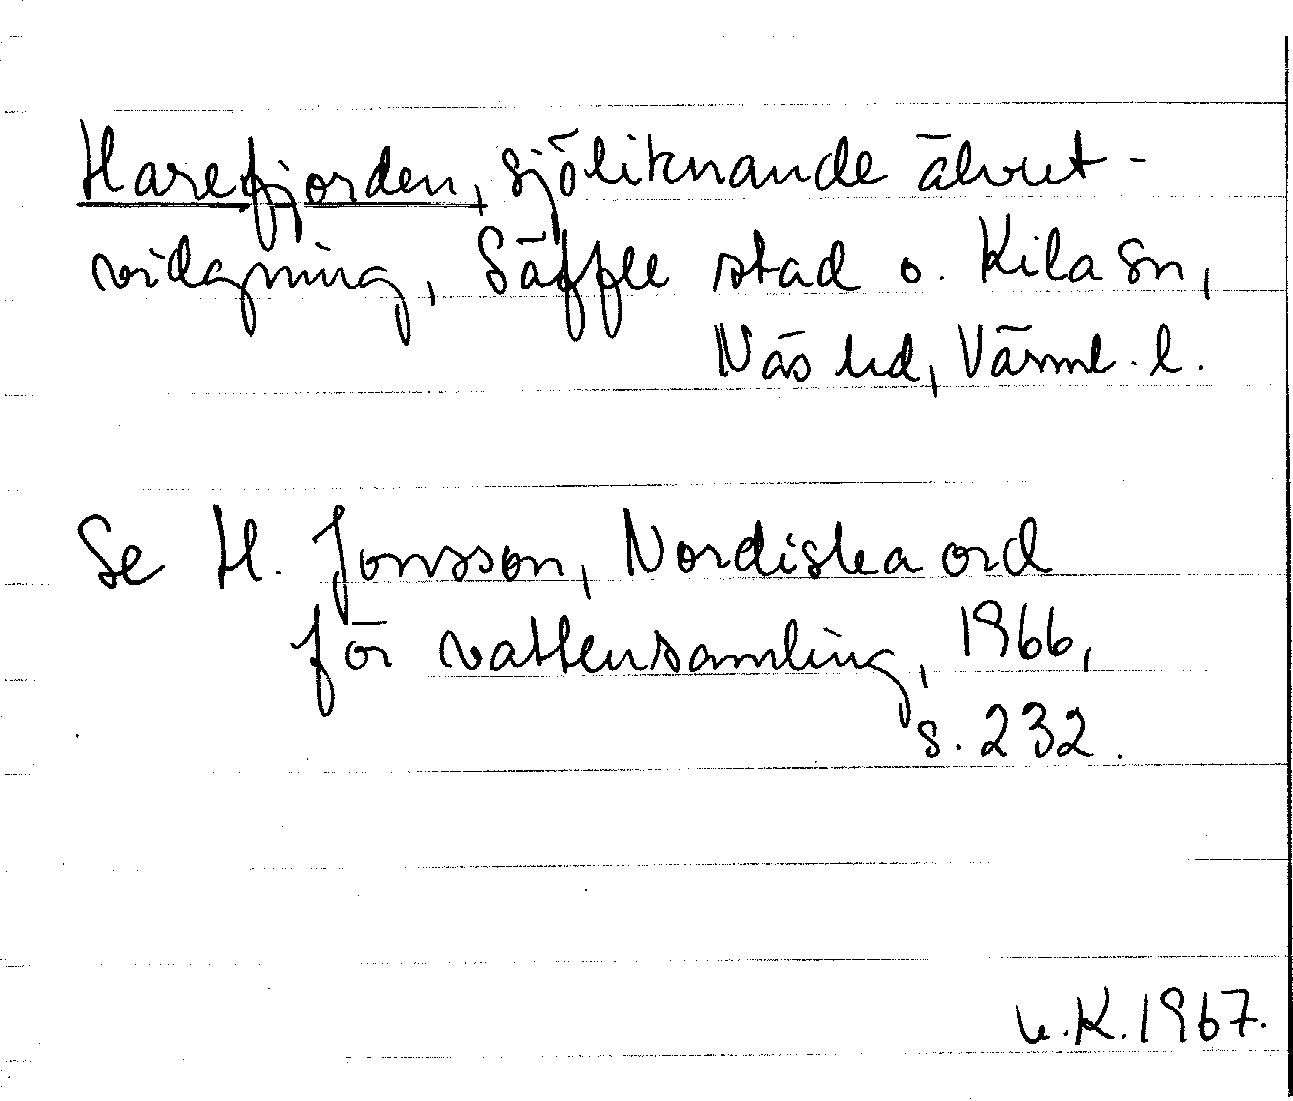 Harefjorden, sjöliknande älvut-
vidgning, Säffle stad o. Kila sn,
Näs hd, Värml. l.
Se H. Jonsson, Nordiska ord
för vattensamling, 1966,
s. 232.
K. 1967.